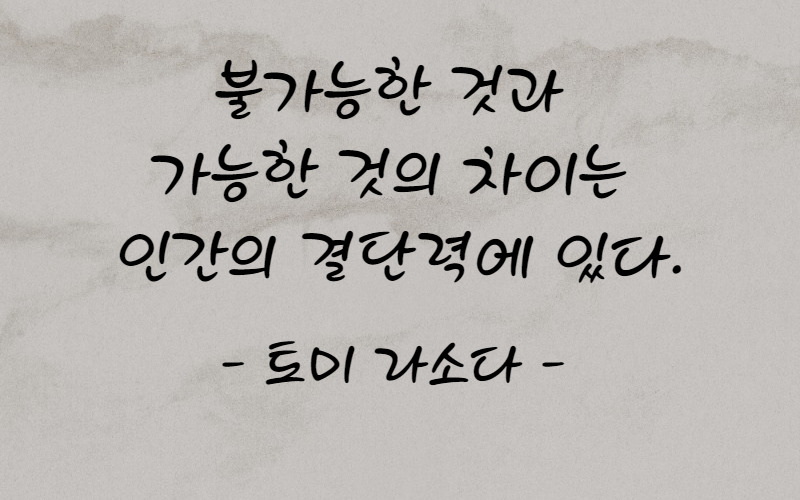 불가능한 것과
가능한 것의 차이는
인간의 결단력에 있다.
- 토미 라소다 -